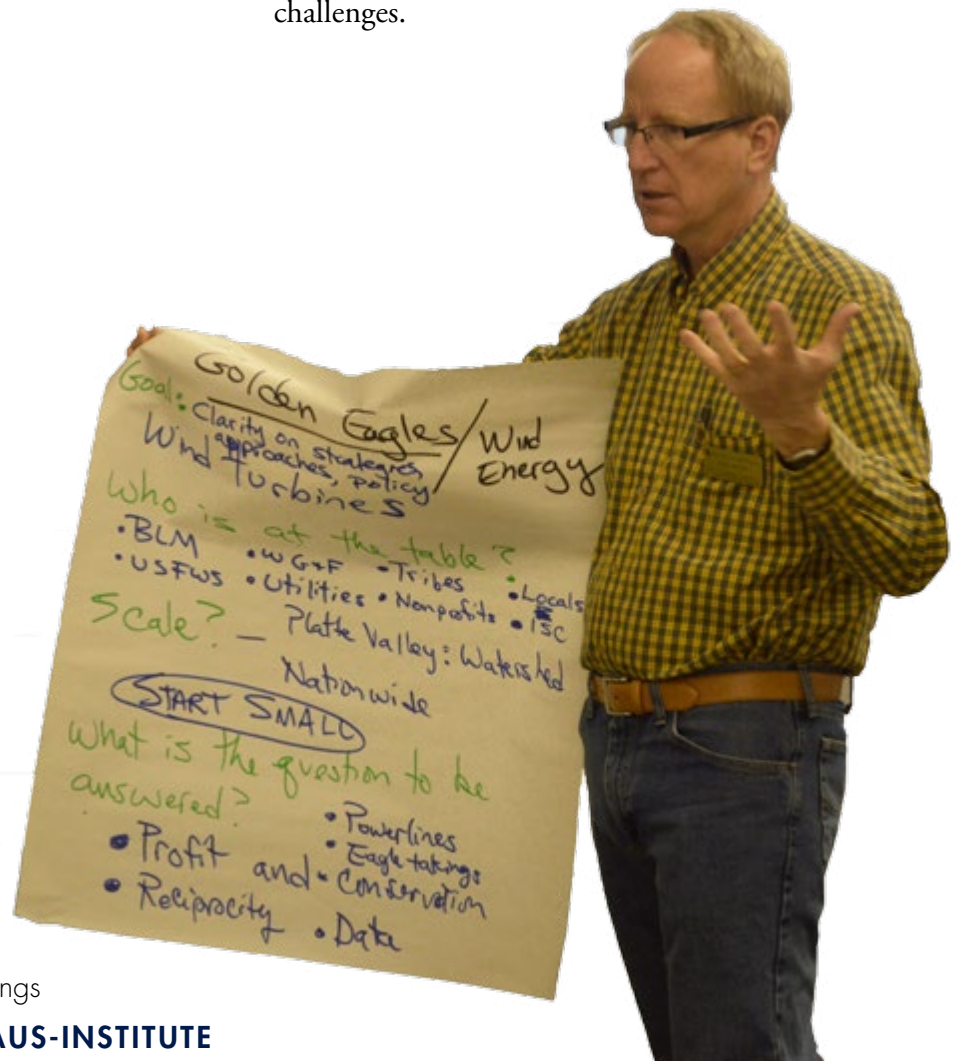 challenges.
Golden Eagles / Wind
Energy
Goal: Clarity on strategies,
approaches, policy
Wind Turbines
Who is at the table?
• BLM • WG+F • Tribes • Locals
• USFWS • Utilities • Nonprofits • ISC
Scale? – Platte Valley: Watershed
Nationwide
START SMALL
What is the question to be
answered?
• Powerlines
• Eagle takings
• Profit and • Conservation
• Reciprocity • Data
ngs
AUS-INSTITUTE